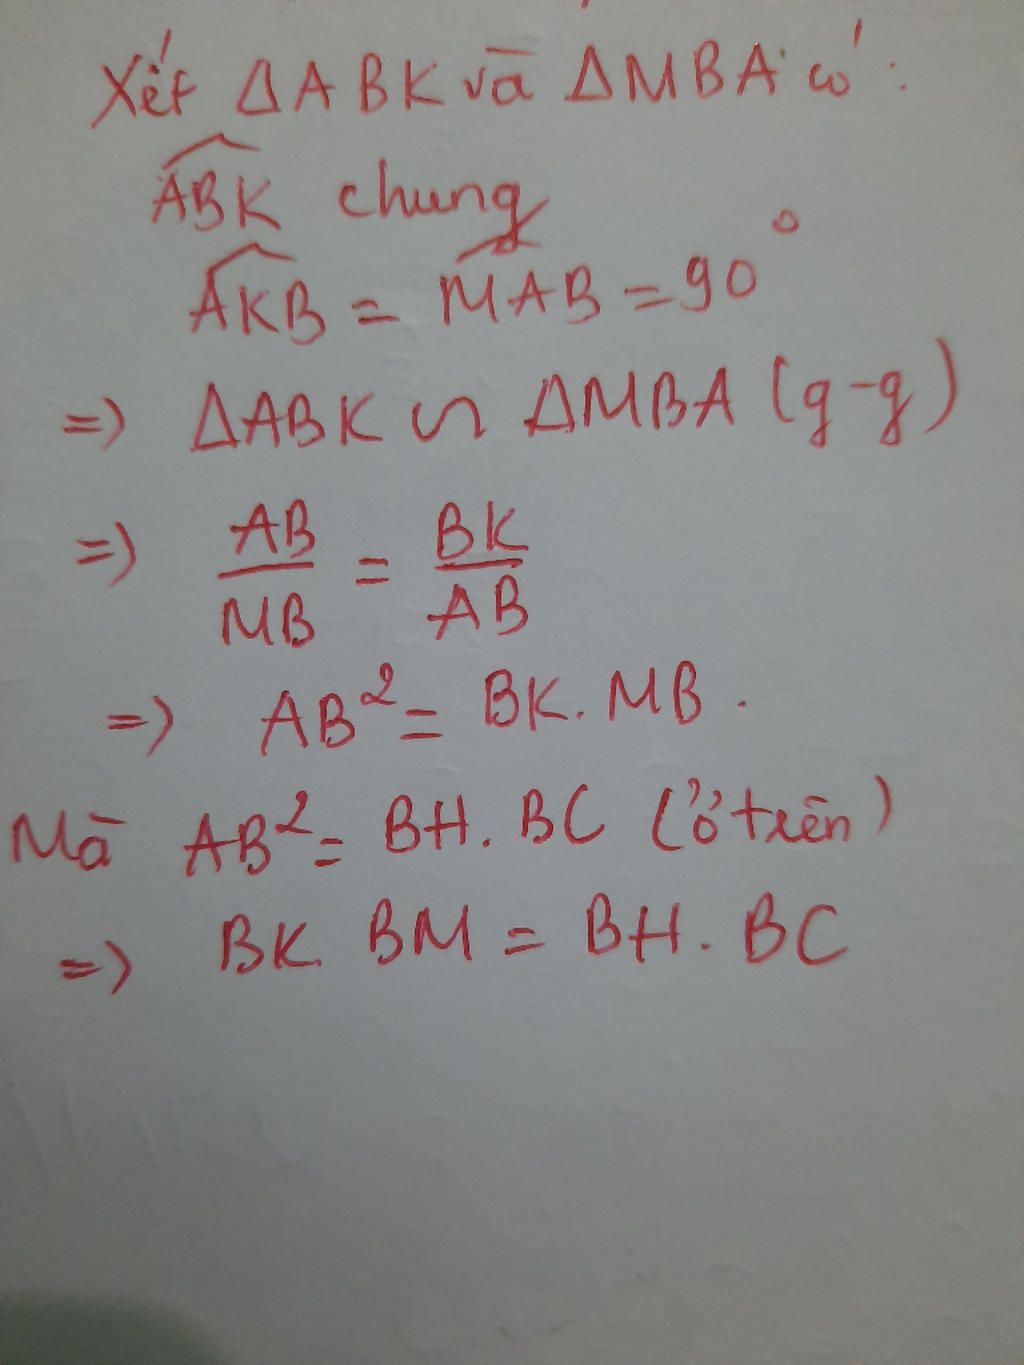 Xét ΔABK và ΔMBA có:
ABK chung
AKB = MAB = 90°
=> ΔABK ∽ ΔMBA (g-g)
=> AB/MB = BK/AB
=> AB² = BK. MB.
Mà AB² = BH. BC (ở trên)
=> BK. BM = BH. BC